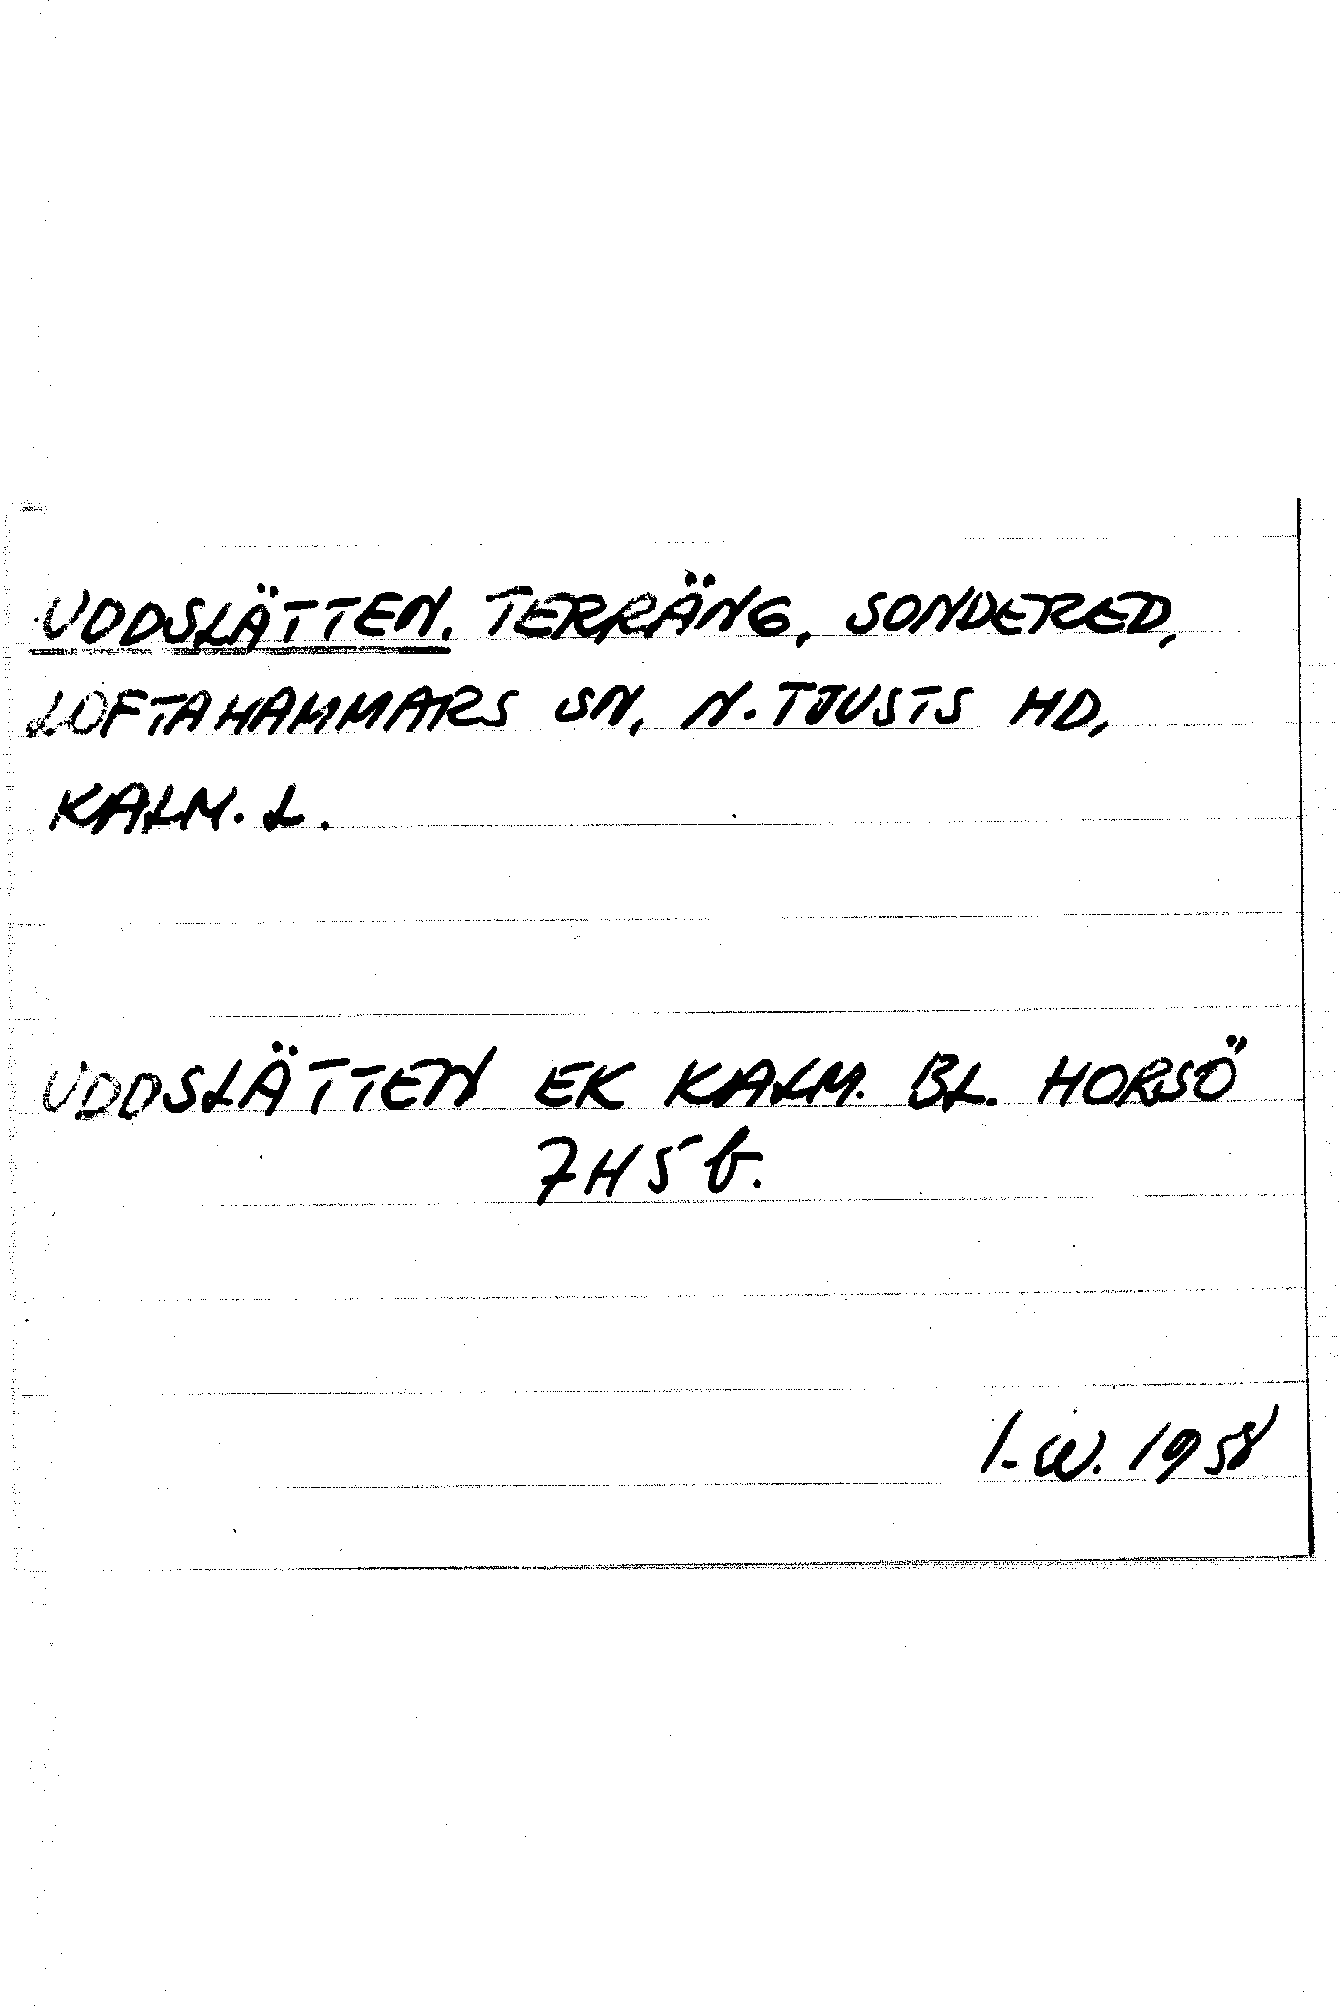 UDDSLÄTTEN. TERRÄNG, SONDERED,
LOFTAHAMMARS SN, N. TJUSTS HD,
KALM. L.
UDDSLÄTTEN EK KALM. BL. HORSÖ
7H5b.
I-W. 1958